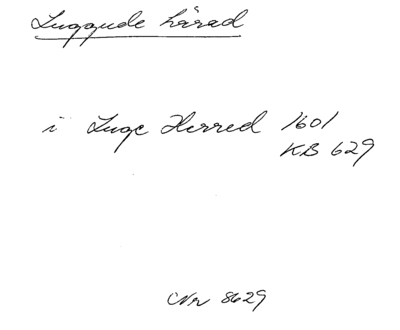 Luggude härad
i Luge Herred 1601
KB 629
Nr 8629